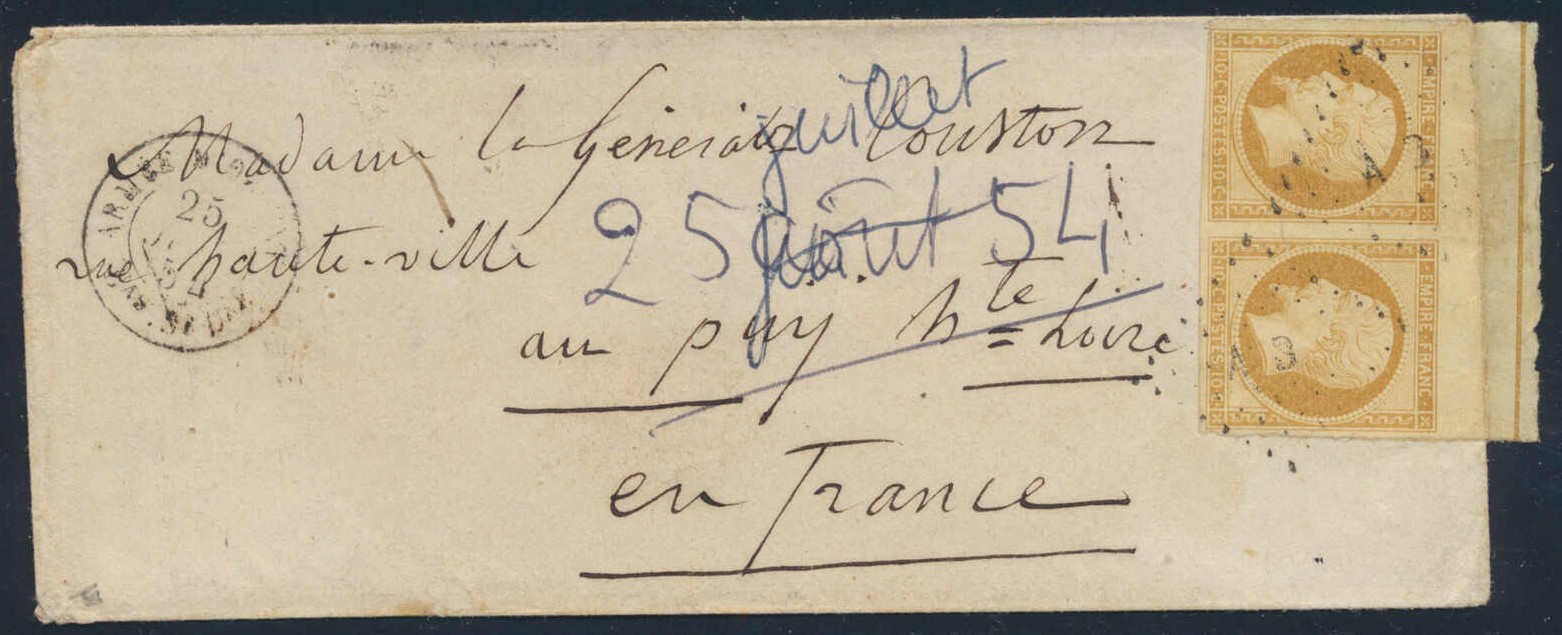 Madame la Générale Couston
rue haute-ville
au puy hte Loire
en France
juillet
25 août 54
25
EMPIRE FRANC
10 C. POSTES 10 C.
EMPIRE FRANC
10 C. POSTES 10 C.